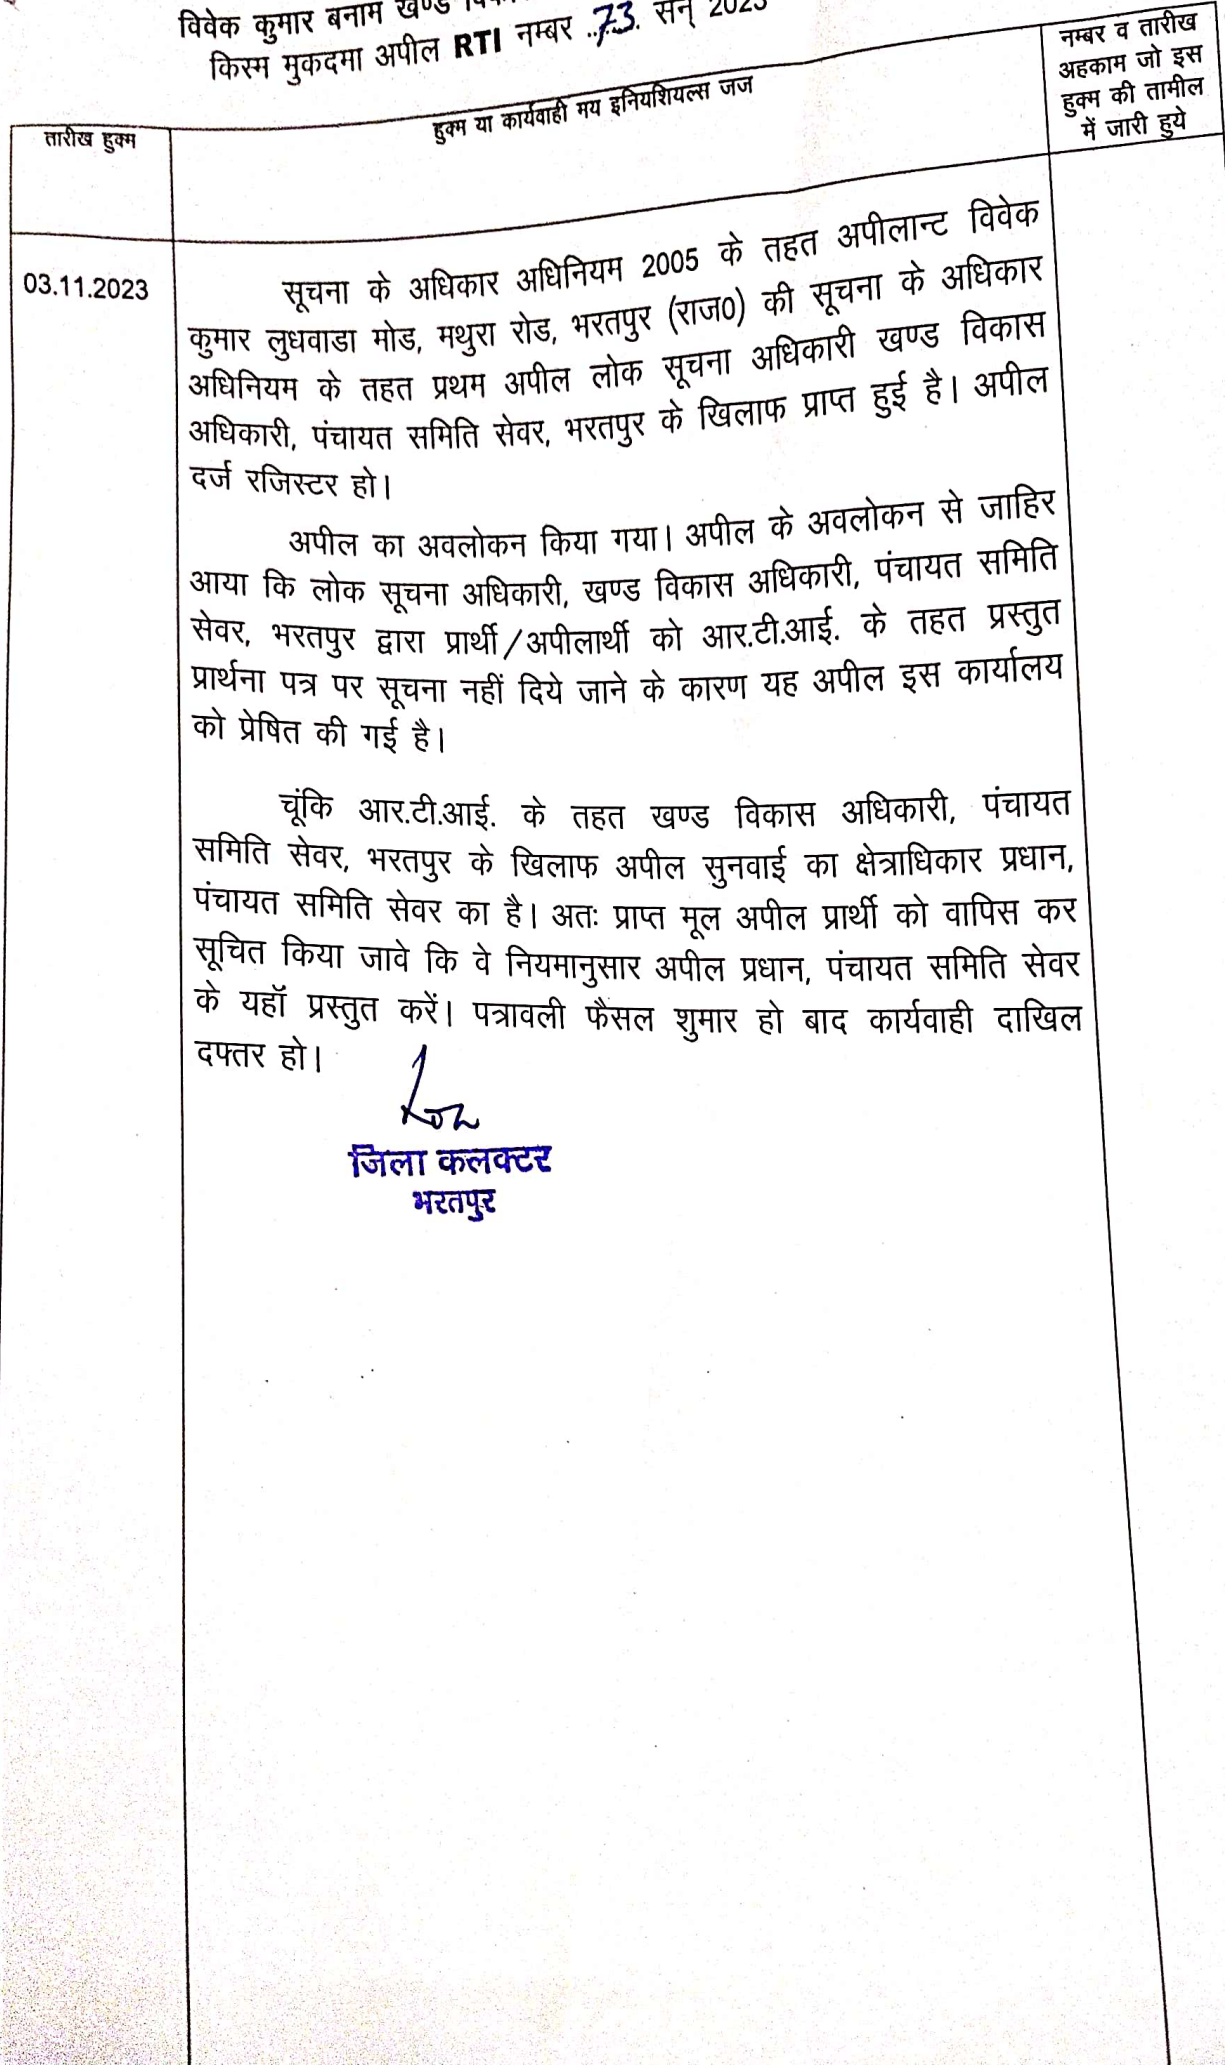 विवेक कुमार बनाम खण्ड
किस्म मुकदमा अपील RTI नम्बर ..73. सन् 2023
तारीख हुक्म
हुक्म या कार्यवाही मय इनियशियल्स जज
नम्बर व तारीख
अहकाम जो इस
हुक्म की तामील
में जारी हुये
03.11.2023
सूचना के अधिकार अधिनियम 2005 के तहत अपीलान्ट विवेक
कुमार लुधवाडा मोड, मथुरा रोड, भरतपुर (राज0) की सूचना के अधिकार
अधिनियम के तहत प्रथम अपील लोक सूचना अधिकारी खण्ड विकास
अधिकारी, पंचायत समिति सेवर, भरतपुर के खिलाफ प्राप्त हुई है। अपील
दर्ज रजिस्टर हो।
अपील का अवलोकन किया गया। अपील के अवलोकन से जाहिर
आया कि लोक सूचना अधिकारी, खण्ड विकास अधिकारी, पंचायत समिति
सेवर, भरतपुर द्वारा प्रार्थी/अपीलार्थी को आर.टी.आई. के तहत प्रस्तुत
प्रार्थना पत्र पर सूचना नहीं दिये जाने के कारण यह अपील इस कार्यालय
को प्रेषित की गई है।
चूंकि आर.टी.आई. के तहत खण्ड विकास अधिकारी, पंचायत
समिति सेवर, भरतपुर के खिलाफ अपील सुनवाई का क्षेत्राधिकार प्रधान,
पंचायत समिति सेवर का है। अतः प्राप्त मूल अपील प्रार्थी को वापिस कर
सूचित किया जावे कि वे नियमानुसार अपील प्रधान, पंचायत समिति सेवर
के यहॉ प्रस्तुत करें। पत्रावली फैसल शुमार हो बाद कार्यवाही दाखिल
दफ्तर हो।
जिला कलक्टर
भरतपुर